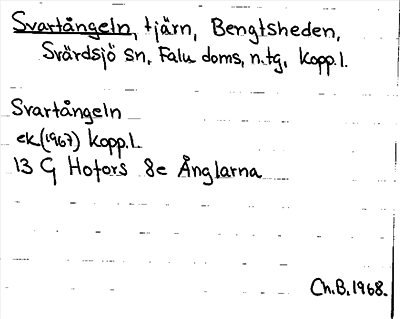 Svartångeln, tjärn, Bengtsheden,
Svärdsjö sn, Falu doms. n. tg, Kopp. l.
Svartångeln
ek (1967) Kopp. l.
13 G Hofors 8e Ånglarna
Ch. B. 1968.